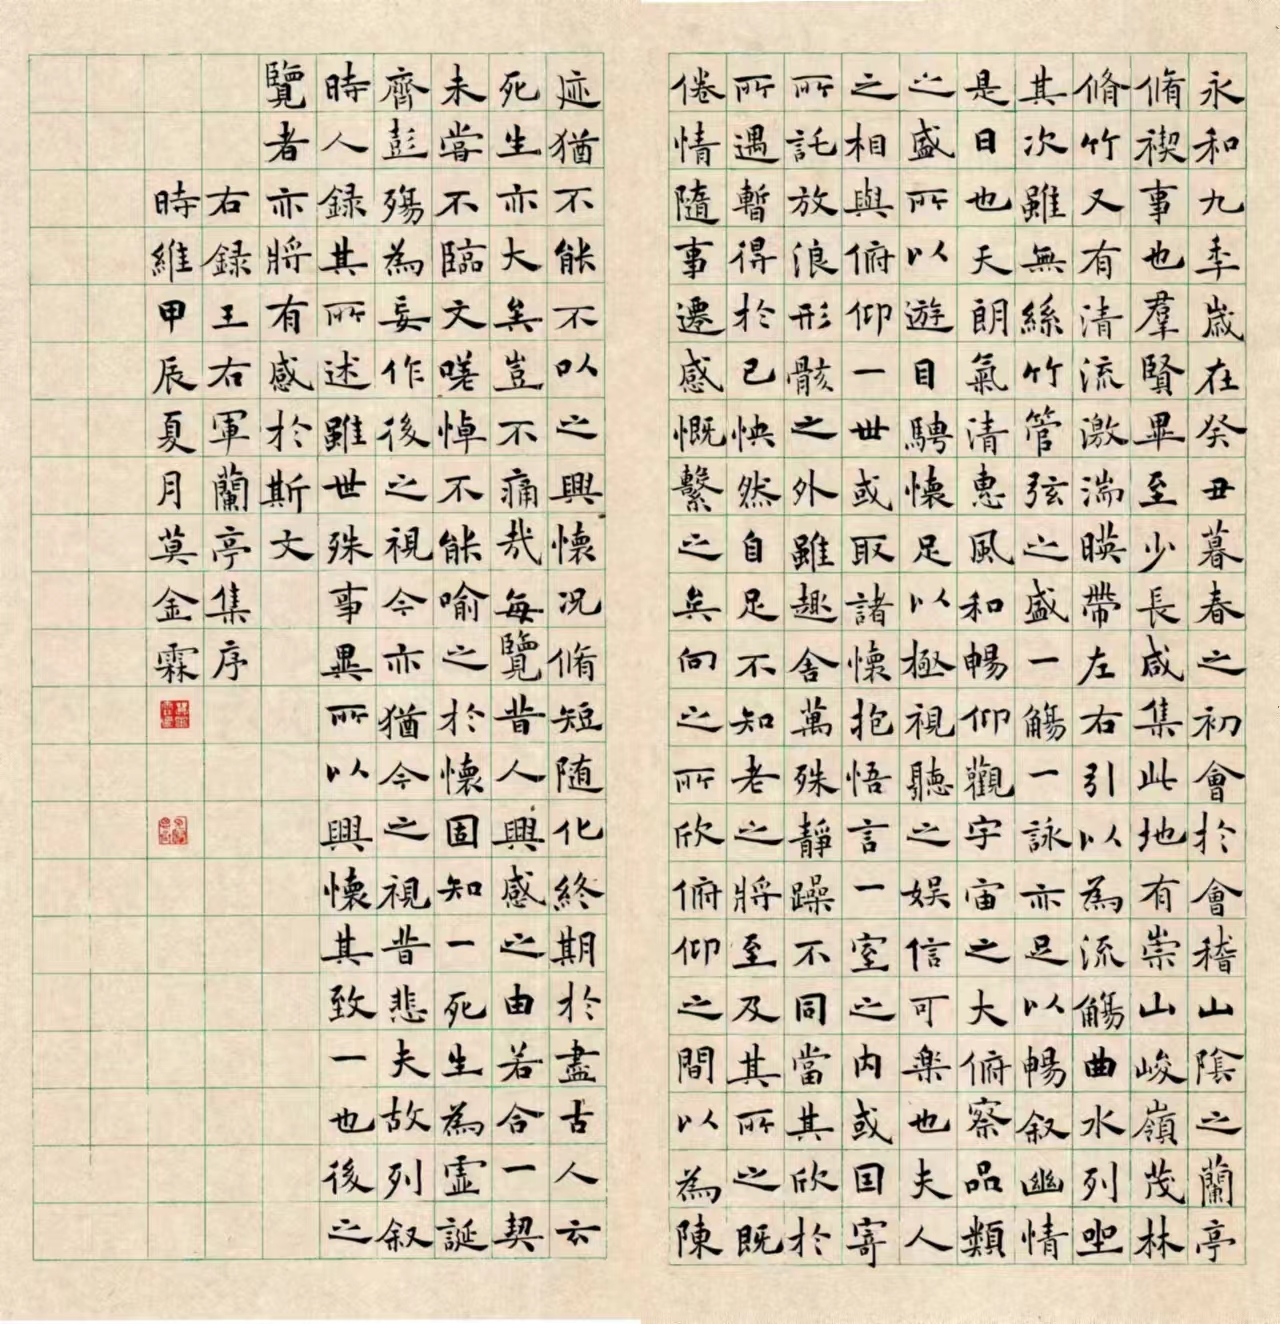 永和九季歲在癸丑暮春之初會於會稽山陰之蘭亭
脩禊事也羣賢畢至少長咸集此地有崇山峻嶺茂林
脩竹又有清流激湍暎帶左右引以為流觴曲水列坐
其次雖無絲竹管弦之盛一觴一詠亦足以暢叙幽情
是日也天朗氣清惠風和暢仰觀宇宙之大俯察品類
之盛所以遊目騁懷足以極視聽之娛信可樂也夫人
之相與俯仰一世或取諸懷抱悟言一室之内或因寄
所託放浪形骸之外雖趣舍萬殊靜躁不同當其欣於
所遇暫得於己怏然自足不知老之將至及其所之既
倦情隨事遷感慨繫之矣向之所欣俯仰之間以為陳
迹猶不能不以之興懷況脩短随化終期於盡古人云
死生亦大矣豈不痛哉每覽昔人興感之由若合一契
未嘗不臨文嗟悼不能喻之於懷固知一死生為虛誕
齊彭殤為妄作後之視今亦猶今之視昔悲夫故列叙
時人録其所述雖世殊事異所以興懷其致一也後之
覽者亦將有感於斯文
右録王右軍蘭亭集序
時維甲辰夏月莫金霖